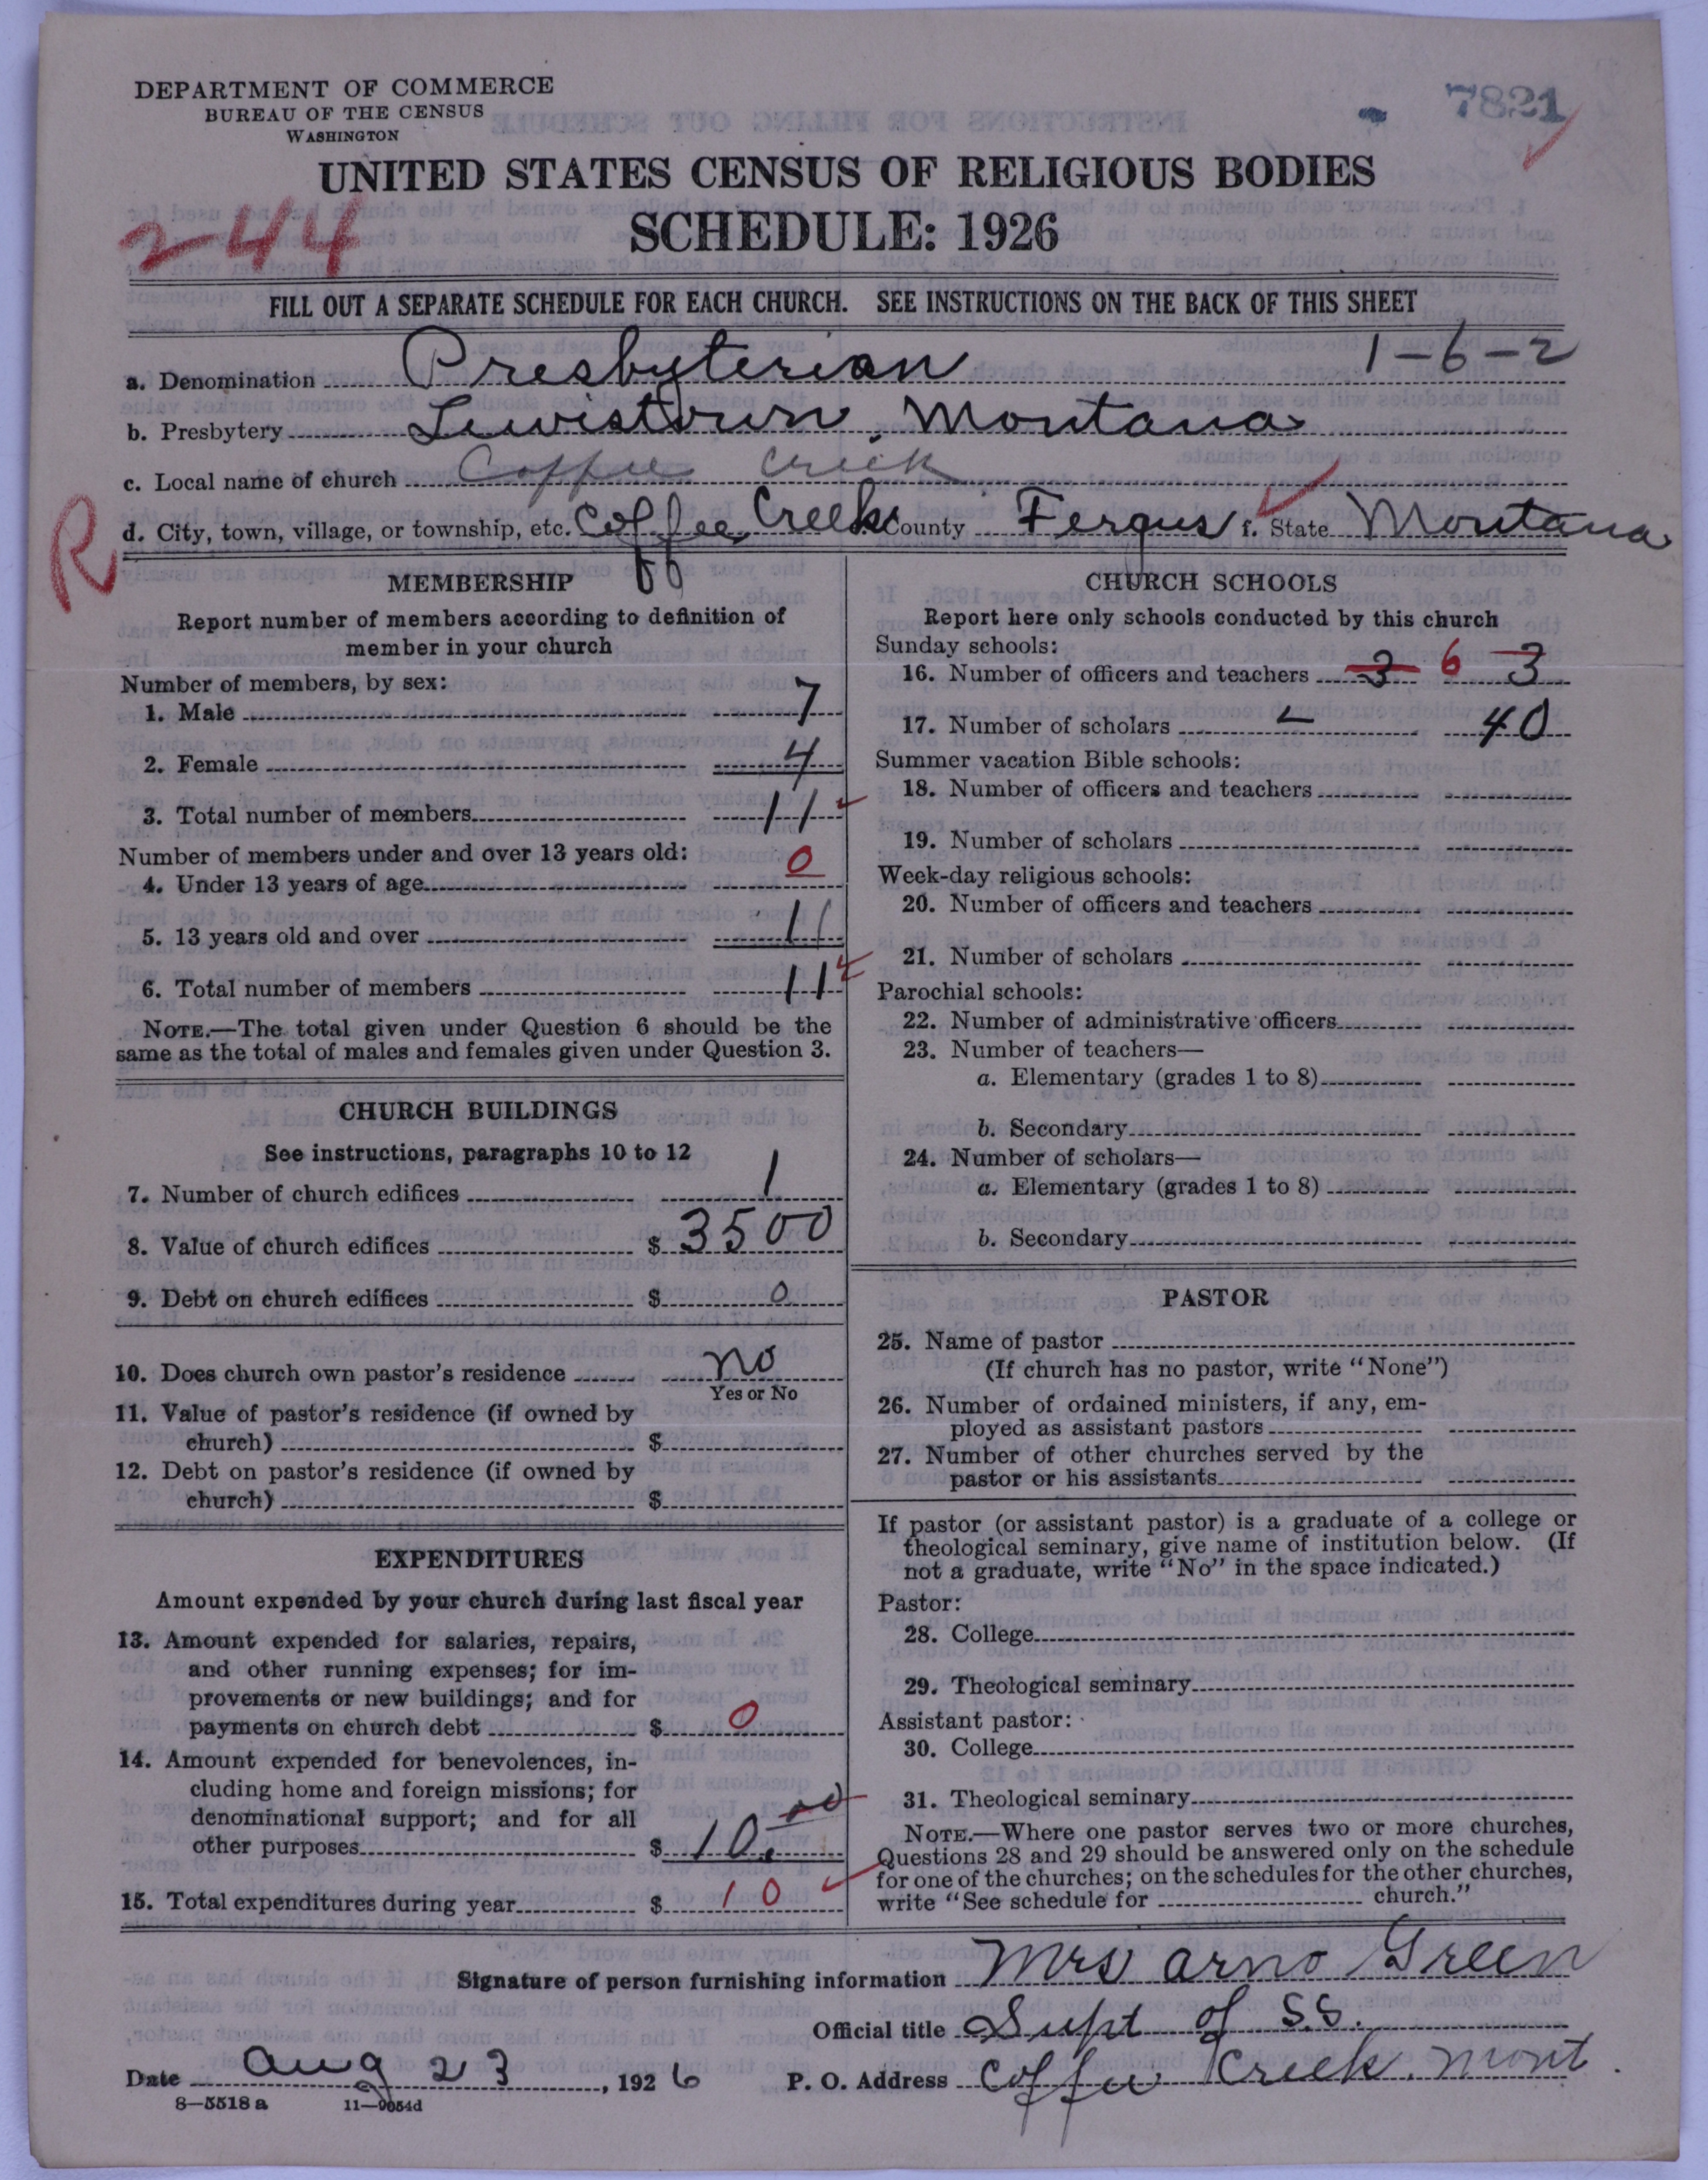 DEPARTMENT OF COMMERCE
BUREAU OF THE CENSUS
WASHINGTON
7821
UNITED STATES CENSUS OF RELIGIOUS BODIES
SCHEDULE: 1926
244
FILL OUT A SEPARATE SCHEDULE FOR EACH CHURCH. SEE INSTRUCTIONS ON THE BACK OF THIS SHEET
a. Denomination Presbyterian 1-6-2
b. Presbytery Lewistown, Montana
c. Local name of church Coffee Creek
R
d. City, town, village, or township, etc. Coffee Creek County Fergus f. State Montana
MEMBERSHIP
Report number of members according to definition of
member in your church
Number of members, by sex:
1. Male 7
2. Female 4
3. Total number of members 11
Number of members under and over 13 years old:
4. Under 13 years of age 0
5. 13 years old and over 11
6. Total number of members 11
NOTE.—The total given under Question 6 should be the
same as the total of males and females given under Question 3.
CHURCH BUILDINGS
See instructions, paragraphs 10 to 12
7. Number of church edifices 1
8. Value of church edifices $ 3500
9. Debt on church edifices $ 0
10. Does church own pastor's residence no
Yes or No
11. Value of pastor's residence (if owned by
church) $
12. Debt on pastor's residence (if owned by
church) $
EXPENDITURES
Amount expended by your church during last fiscal year
13. Amount expended for salaries, repairs,
and other running expenses; for im-
provements or new buildings; and for
payments on church debt $ 0
14. Amount expended for benevolences, in-
cluding home and foreign missions; for
denominational support; and for all
other purposes $ 10.00
15. Total expenditures during year $ 10
CHURCH SCHOOLS
Report here only schools conducted by this church
Sunday schools:
16. Number of officers and teachers 3 6 3
17. Number of scholars 40
Summer vacation Bible schools:
18. Number of officers and teachers
19. Number of scholars
Week-day religious schools:
20. Number of officers and teachers
21. Number of scholars
Parochial schools:
22. Number of administrative officers
23. Number of teachers—
a. Elementary (grades 1 to 8)
b. Secondary
24. Number of scholars—
a. Elementary (grades 1 to 8)
b. Secondary
PASTOR
25. Name of pastor
(If church has no pastor, write "None")
26. Number of ordained ministers, if any, em-
ployed as assistant pastors
27. Number of other churches served by the
pastor or his assistants
If pastor (or assistant pastor) is a graduate of a college or
theological seminary, give name of institution below. (If
not a graduate, write "No" in the space indicated.)
Pastor:
28. College
29. Theological seminary
Assistant pastor:
30. College
31. Theological seminary
NOTE.—Where one pastor serves two or more churches,
Questions 28 and 29 should be answered only on the schedule
for one of the churches; on the schedules for the other churches,
write "See schedule for church."
Signature of person furnishing information Mrs Arno Green
Official title Supt of S.S.
Date Aug 23, 1926 P. O. Address Coffee Creek. Mont.
8—5518 a 11—9054d